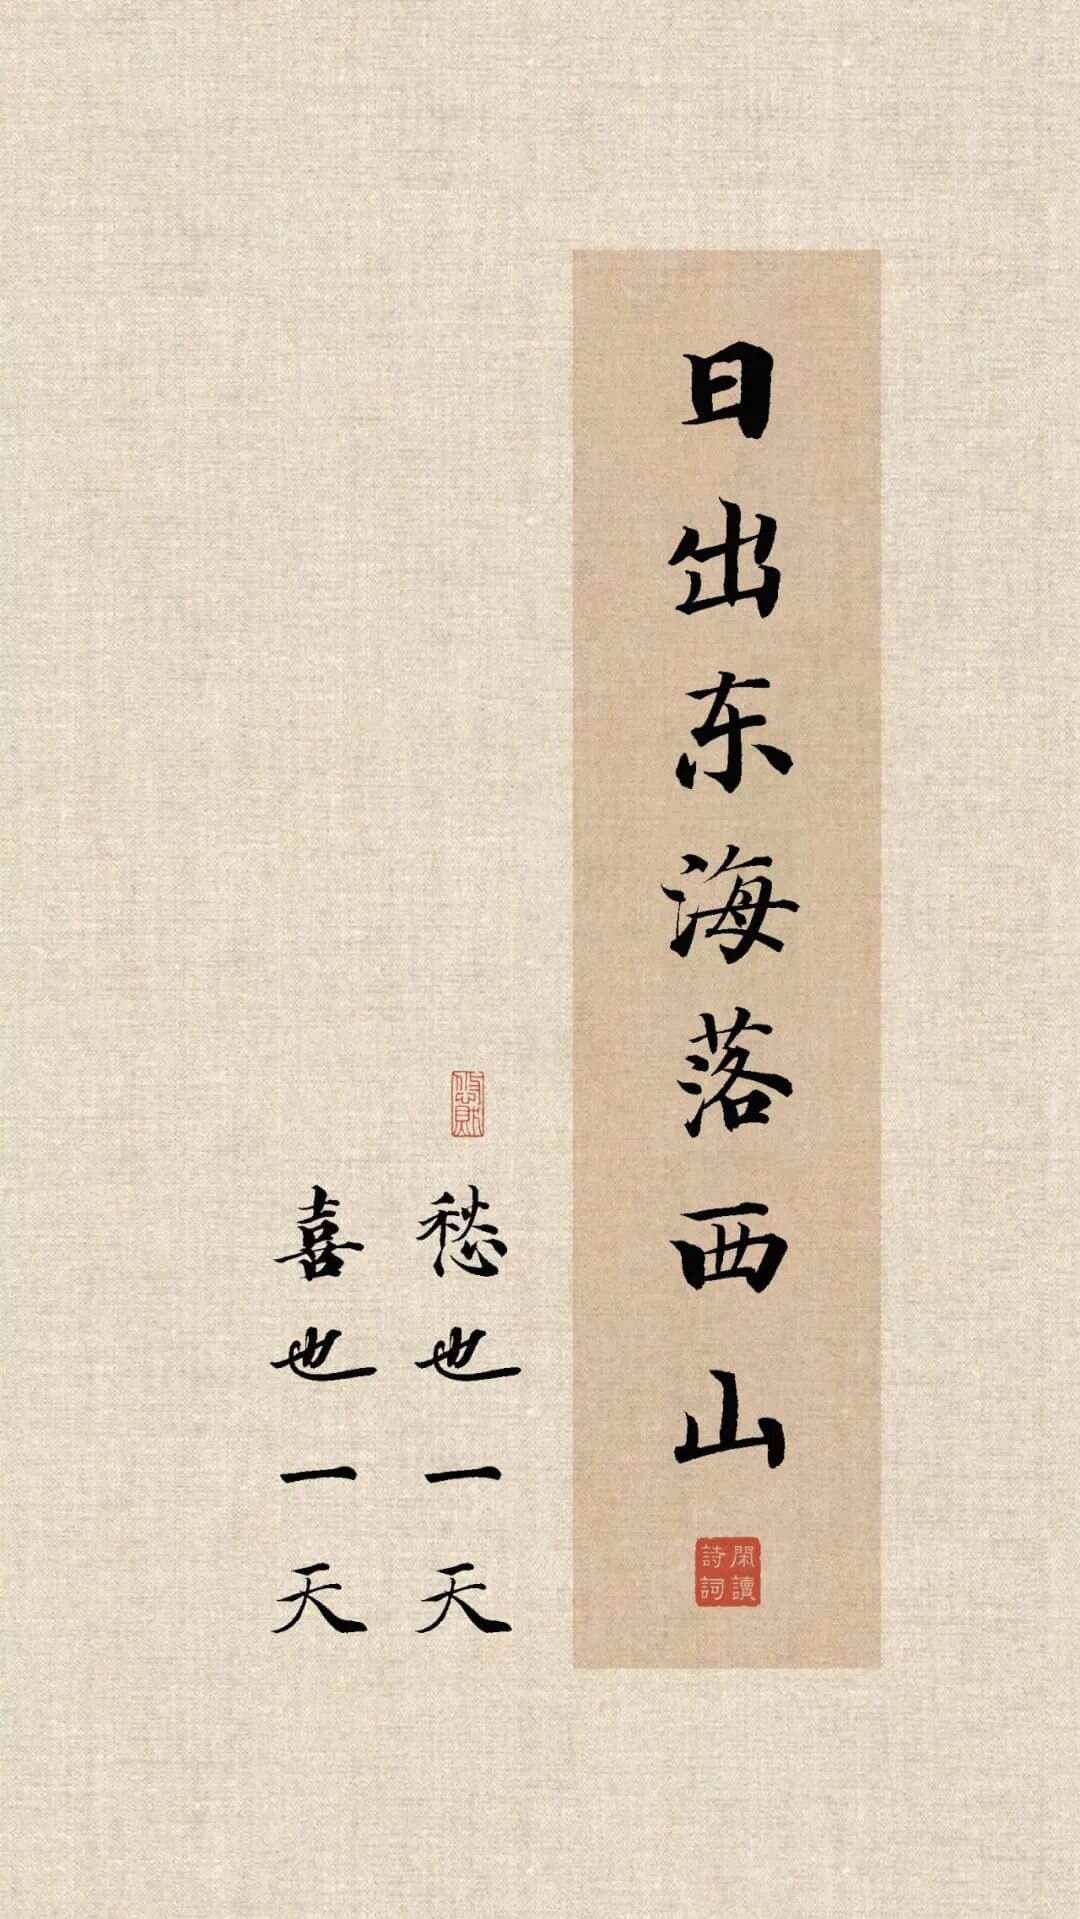 日出东海落西山
閑讀
詩詞
愁也一天
喜也一天